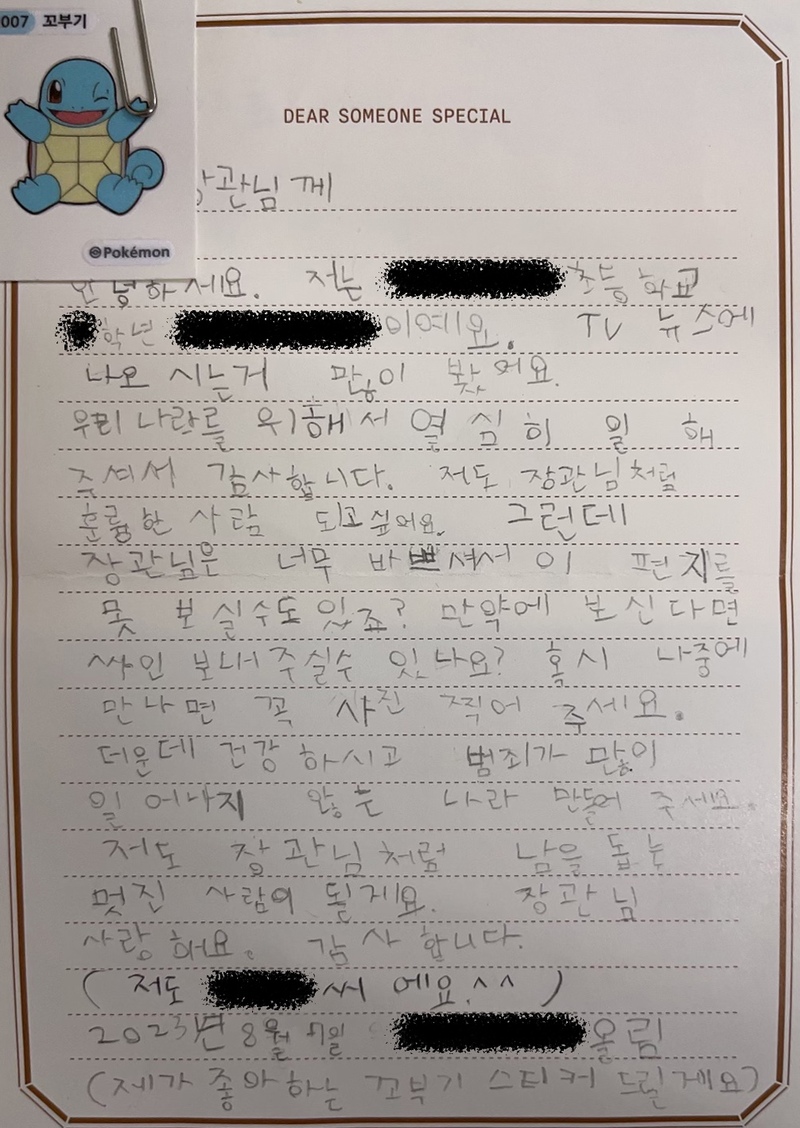 007 꼬부기
©Pokémon
DEAR SOMEONE SPECIAL
장관님께
안녕하세요. 저는 초등학교
학년 이예요. TV 뉴스에
나오시는거 많이 봤어요.
우리나라를 위해서 열심히 일해
주셔서 감사합니다. 저도 장관님처럼
훌륭한 사람 되고싶어요. 그런데
장관님은 너무 바쁘셔서 이 편지를
못 보실수도 있죠? 만약에 보신다면
싸인 보내주실수 있나요? 혹시 나중에
만나면 꼭 사진 찍어 주세요.
더운데 건강하시고 범죄가 많이
일어나지 않는 나라 만들어 주세요.
저도 장관님처럼 남을 돕는
멋진 사람이 될게요. 장관님
사랑해요. 감사합니다.
(저도 씨에요.^^)
2023년 8월 7일 올림
(제가 좋아하는 꼬부기 스티커 드릴게요)